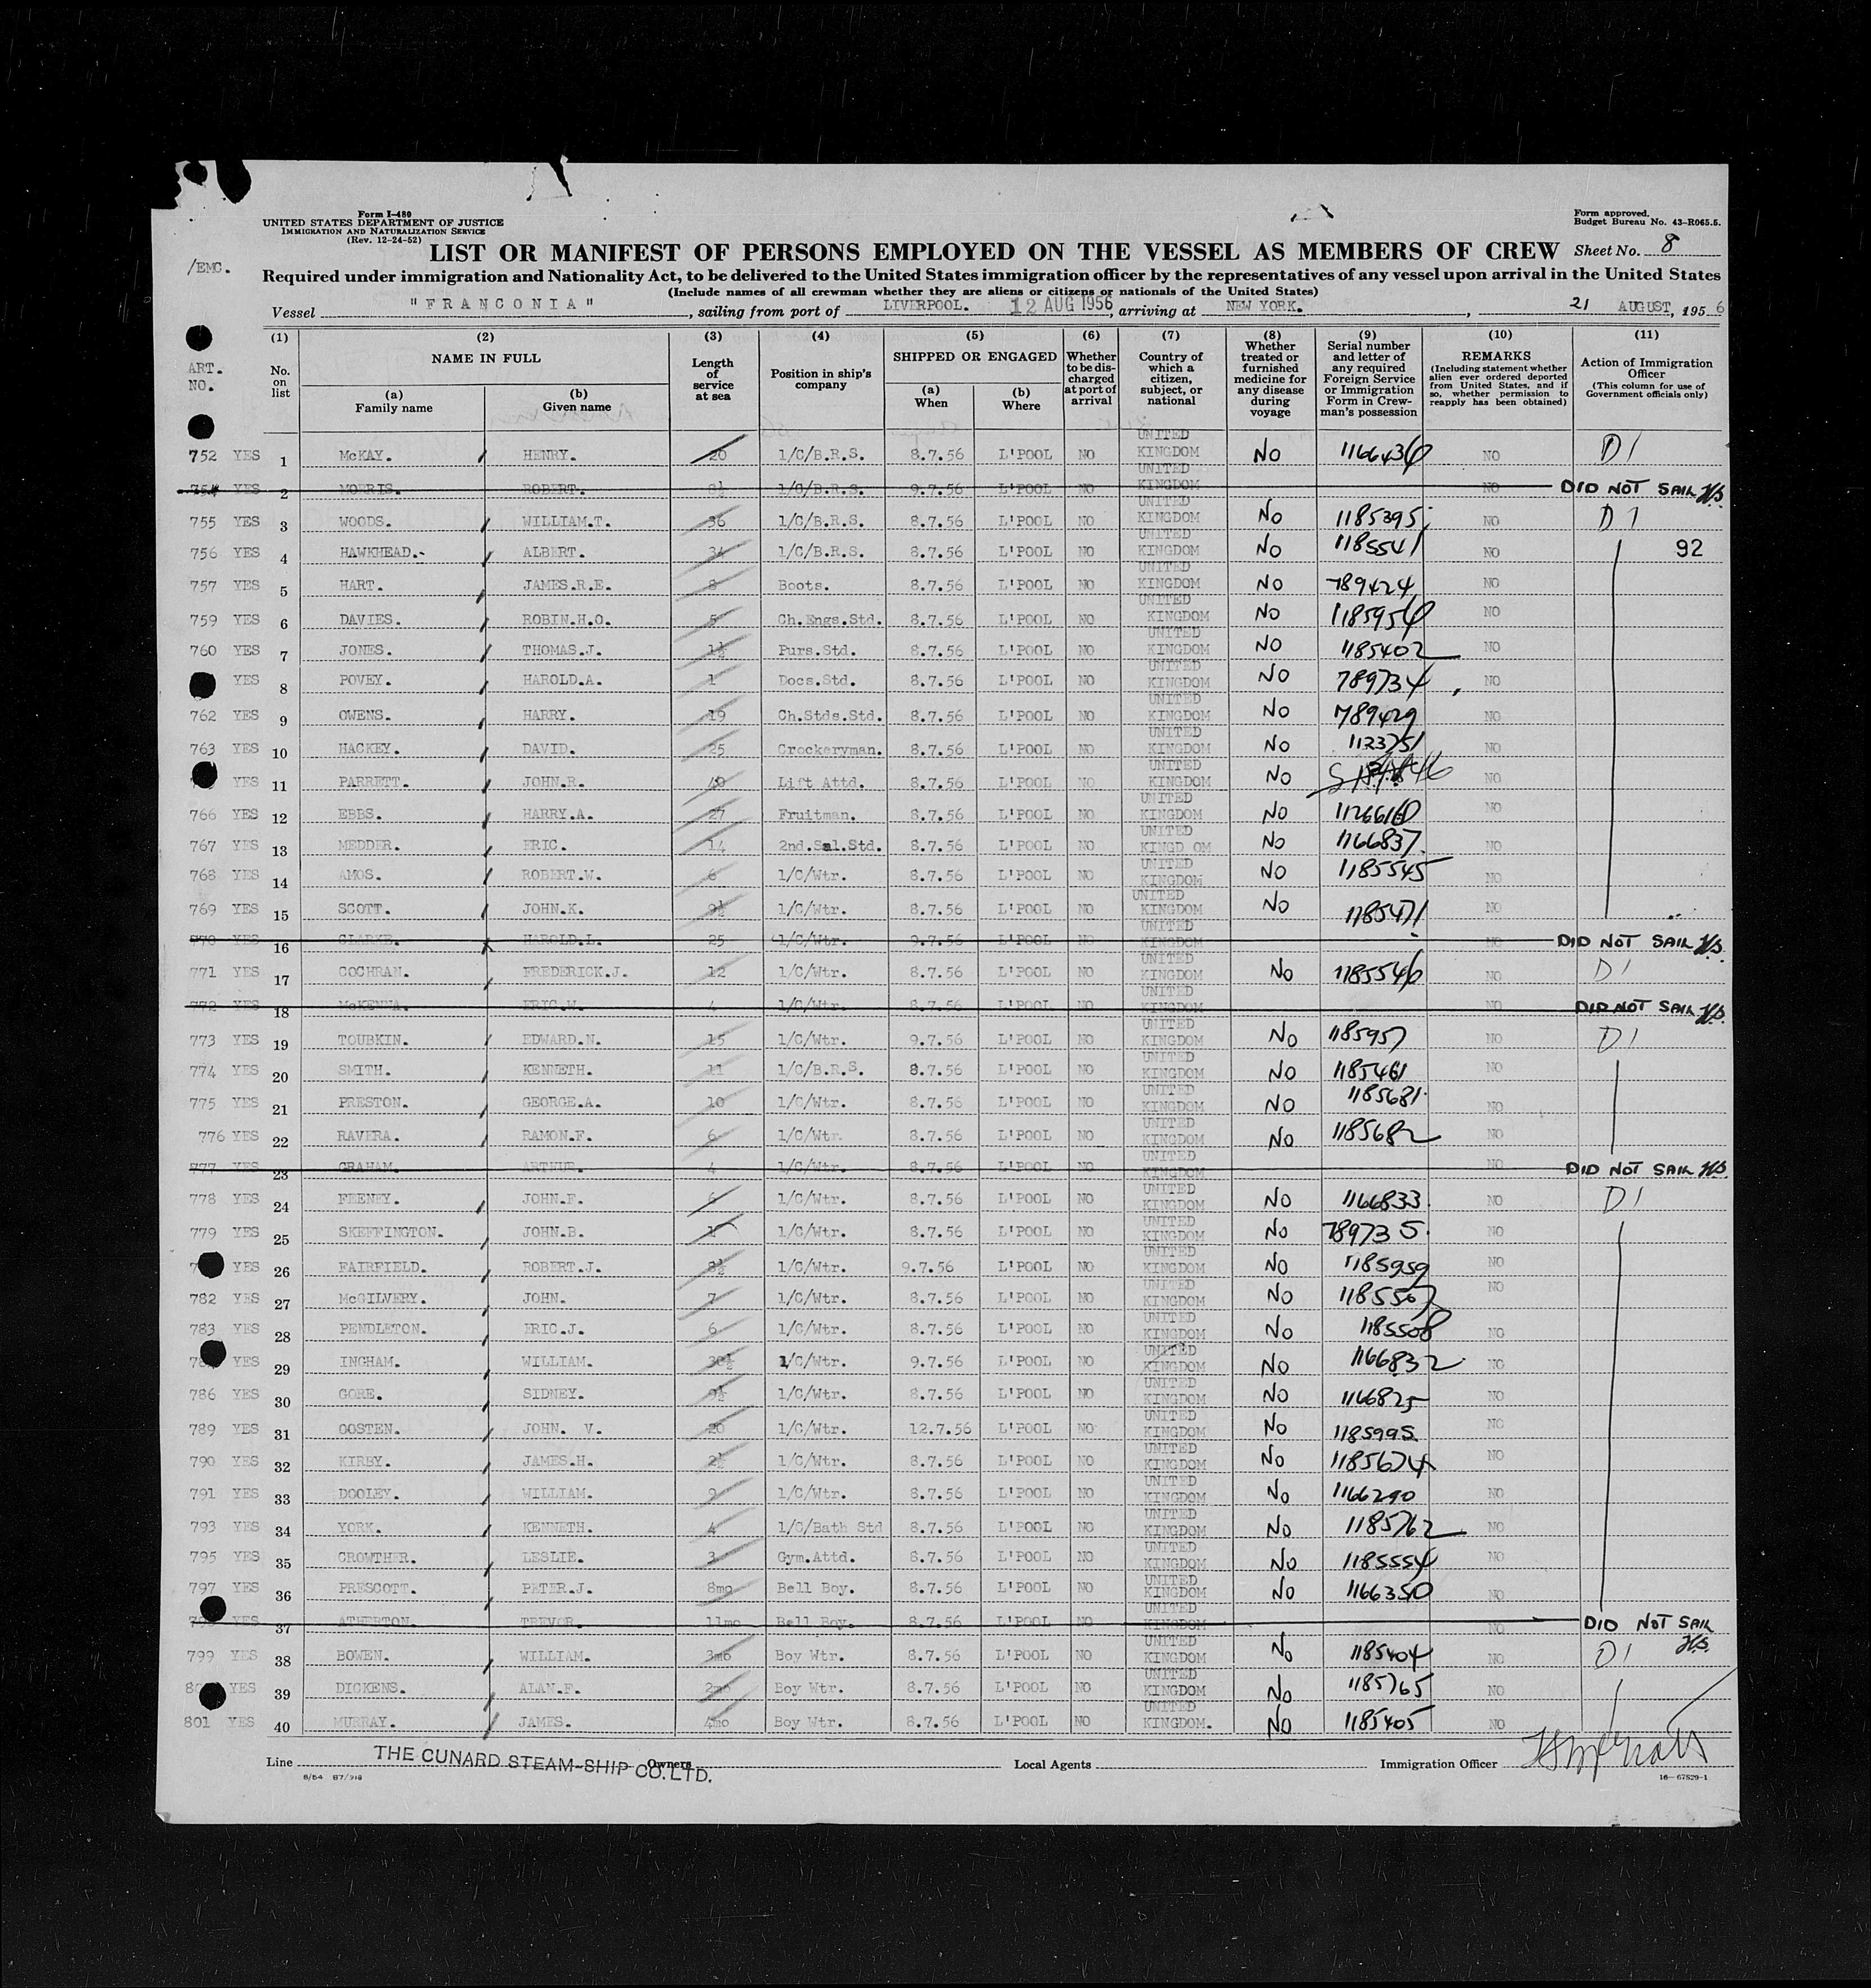 Form I-480
UNITED STATES DEPARTMENT OF JUSTICE
IMMIGRATION AND NATURALIZATION SERVICE
(Rev. 12-24-52)
Form approved.
Budget Bureau No. 43-R065.5.
LIST OR MANIFEST OF PERSONS EMPLOYED ON THE VESSEL AS MEMBERS OF CREW Sheet No. 8
/EMC.
Required under immigration and Nationality Act, to be delivered to the United States immigration officer by the representatives of any vessel upon arrival in the United States
(Include names of all crewman whether they are aliens or citizens or nationals of the United States)
Vessel "FRANCONIA", sailing from port of LIVERPOOL. 12 AUG 1956, arriving at NEW YORK., 21 AUGUST, 1956
ART. NO.
(1) No. on list
(2) NAME IN FULL (a) Family name (b) Given name
(3) Length of service at sea
(4) Position in ship's company
(5) SHIPPED OR ENGAGED (a) When (b) Where
(6) Whether to be discharged at port of arrival
(7) Country of which a citizen, subject, or national
(8) Whether treated or furnished medicine for any disease during voyage
(9) Serial number and letter of any required Foreign Service or Immigration Form in Crewman's possession
(10) REMARKS (Including statement whether alien ever ordered deported from United States, and if so, whether permission to reapply has been obtained)
(11) Action of Immigration Officer (This column for use of Government officials only)
752 YES 1 McKAY. HENRY. 20 1/C/B.R.S. 8.7.56 L'POOL NO UNITED KINGDOM No NO D1
754 YES 2 MORRIS. ROBERT. 8½ 1/C/B.R.S. 9.7.56 L'POOL NO UNITED KINGDOM NO DID NOT SAIL
755 YES 3 WOODS. WILLIAM.T. 36 1/C/B.R.S. 8.7.56 L'POOL NO UNITED KINGDOM No 1185395 NO D1
756 YES 4 HAWKHEAD.- ALBERT. 34 1/C/B.R.S. 8.7.56 L'POOL NO UNITED KINGDOM No 1185541 NO 92
757 YES 5 HART. JAMES.R.E. 8 Boots. 8.7.56 L'POOL NO UNITED KINGDOM No 789424 NO
759 YES 6 DAVIES. ROBIN.H.O. 5 Ch.Engs.Std. 8.7.56 L'POOL NO UNITED KINGDOM No NO
760 YES 7 JONES. THOMAS.J. 1½ Purs.Std. 8.7.56 L'POOL NO UNITED KINGDOM No 1185402 NO
YES 8 POVEY. HAROLD.A. 1 Docs.Std. 8.7.56 L'POOL NO UNITED KINGDOM No 789734 NO
762 YES 9 OWENS. HARRY. 19 Ch.Stds.Std. 8.7.56 L'POOL NO UNITED KINGDOM No 789429 NO
763 YES 10 HACKEY. DAVID. 25 Crockeryman. 8.7.56 L'POOL NO UNITED KINGDOM No 1123751 NO
YES 11 PARRETT. JOHN.R. 40 Lift Attd. 8.7.56 L'POOL NO UNITED KINGDOM No NO
766 YES 12 EBBS. HARRY.A. 27 Fruitman. 8.7.56 L'POOL NO UNITED KINGDOM No NO
767 YES 13 MEDDER. ERIC. 14 2nd.Sal.Std. 8.7.56 L'POOL NO UNITED KINGD OM No 1166837. NO
768 YES 14 AMOS. ROBERT.W. 6 1/C/Wtr. 8.7.56 L'POOL NO UNITED KINGDOM No 1185545 NO
769 YES 15 SCOTT. JOHN.K. 9½ 1/C/Wtr. 8.7.56 L'POOL NO UNITED KINGDOM No 1185471 NO
770 YES 16 CLARKE. HAROLD.L. 25 1/C/Wtr. 9.7.56 L'POOL NO UNITED KINGDOM NO DID NOT SAIL
771 YES 17 COCHRAN. FREDERICK.J. 12 1/C/Wtr. 8.7.56 L'POOL NO UNITED KINGDOM No 1185546 NO D1
772 YES 18 McKENNA. ERIC.W. 4 1/C/Wtr. 8.7.56 L'POOL NO UNITED KINGDOM NO DID NOT SAIL
773 YES 19 TOUBKIN. EDWARD.N. 15 1/C/Wtr. 9.7.56 L'POOL NO UNITED KINGDOM No 1185957 NO D1
774 YES 20 SMITH. KENNETH. 11 1/C/B.R.S. 8.7.56 L'POOL NO UNITED KINGDOM No 1185461 NO
775 YES 21 PRESTON. GEORGE.A. 10 1/C/Wtr. 8.7.56 L'POOL NO UNITED KINGDOM No 1185681. NO
776 YES 22 RAVERA. RAMON.F. 6 1/C/Wtr. 8.7.56 L'POOL NO UNITED KINGDOM No 1185682 NO
777 YES 23 GRAHAM. ARTHUR. 4 1/C/Wtr. 8.7.56 L'POOL NO UNITED KINGDOM NO DID NOT SAIL
778 YES 24 FEENEY. JOHN.F. 6 1/C/Wtr. 8.7.56 L'POOL NO UNITED KINGDOM No 1166833. NO D1
779 YES 25 SKEFFINGTON. JOHN.B. 1 1/C/Wtr. 8.7.56 L'POOL NO UNITED KINGDOM No 789735. NO
YES 26 FAIRFIELD. ROBERT.J. 8½ 1/C/Wtr. 9.7.56 L'POOL NO UNITED KINGDOM No 1185959 NO
782 YES 27 McGILVERY. JOHN. 7 1/C/Wtr. 8.7.56 L'POOL NO UNITED KINGDOM No NO
783 YES 28 PENDLETON. ERIC.J. 6 1/C/Wtr. 8.7.56 L'POOL NO UNITED KINGDOM No 1185508 NO
YES 29 INGHAM. WILLIAM. 30½ 1/C/Wtr. 9.7.56 L'POOL NO UNITED KINGDOM No 1166832 NO
786 YES 30 GORE. SIDNEY. 9½ 1/C/Wtr. 8.7.56 L'POOL NO UNITED KINGDOM No 1166825 NO
789 YES 31 OOSTEN. JOHN. V. 20 1/C/Wtr. 12.7.56 L'POOL NO UNITED KINGDOM No 1185995 NO
790 YES 32 KIRBY. JAMES.H. 2½ 1/C/Wtr. 8.7.56 L'POOL NO UNITED KINGDOM No 1185674 NO
791 YES 33 DOOLEY. WILLIAM. 9 1/C/Wtr. 8.7.56 L'POOL NO UNITED KINGDOM No 1166290 NO
793 YES 34 YORK. KENNETH. 4 1/C/Bath Std 8.7.56 L'POOL NO UNITED KINGDOM No 1185762 NO
795 YES 35 CROWTHER. LESLIE. 3 Gym.Attd. 8.7.56 L'POOL NO UNITED KINGDOM No 1185554 NO
797 YES 36 PRESCOTT. PETER.J. 8mo Bell Boy. 8.7.56 L'POOL NO UNITED KINGDOM No 1166350 NO
YES 37 ATHERTON. TREVOR. 11mo Bell Boy. 8.7.56 L'POOL NO UNITED KINGDOM NO DID NOT SAIL
799 YES 38 BOWEN. WILLIAM. 3mo Boy Wtr. 8.7.56 L'POOL NO UNITED KINGDOM No 1185404 NO D1
YES 39 DICKENS. ALAN.F. 2mo Boy Wtr. 8.7.56 L'POOL NO UNITED KINGDOM No 1185765 NO
801 YES 40 MURRAY. JAMES. 4mo Boy Wtr. 8.7.56 L'POOL NO UNITED KINGDOM. No 1185405 NO
Line THE CUNARD STEAM-SHIP CO. LTD. Owners Local Agents Immigration Officer
16-67829-1